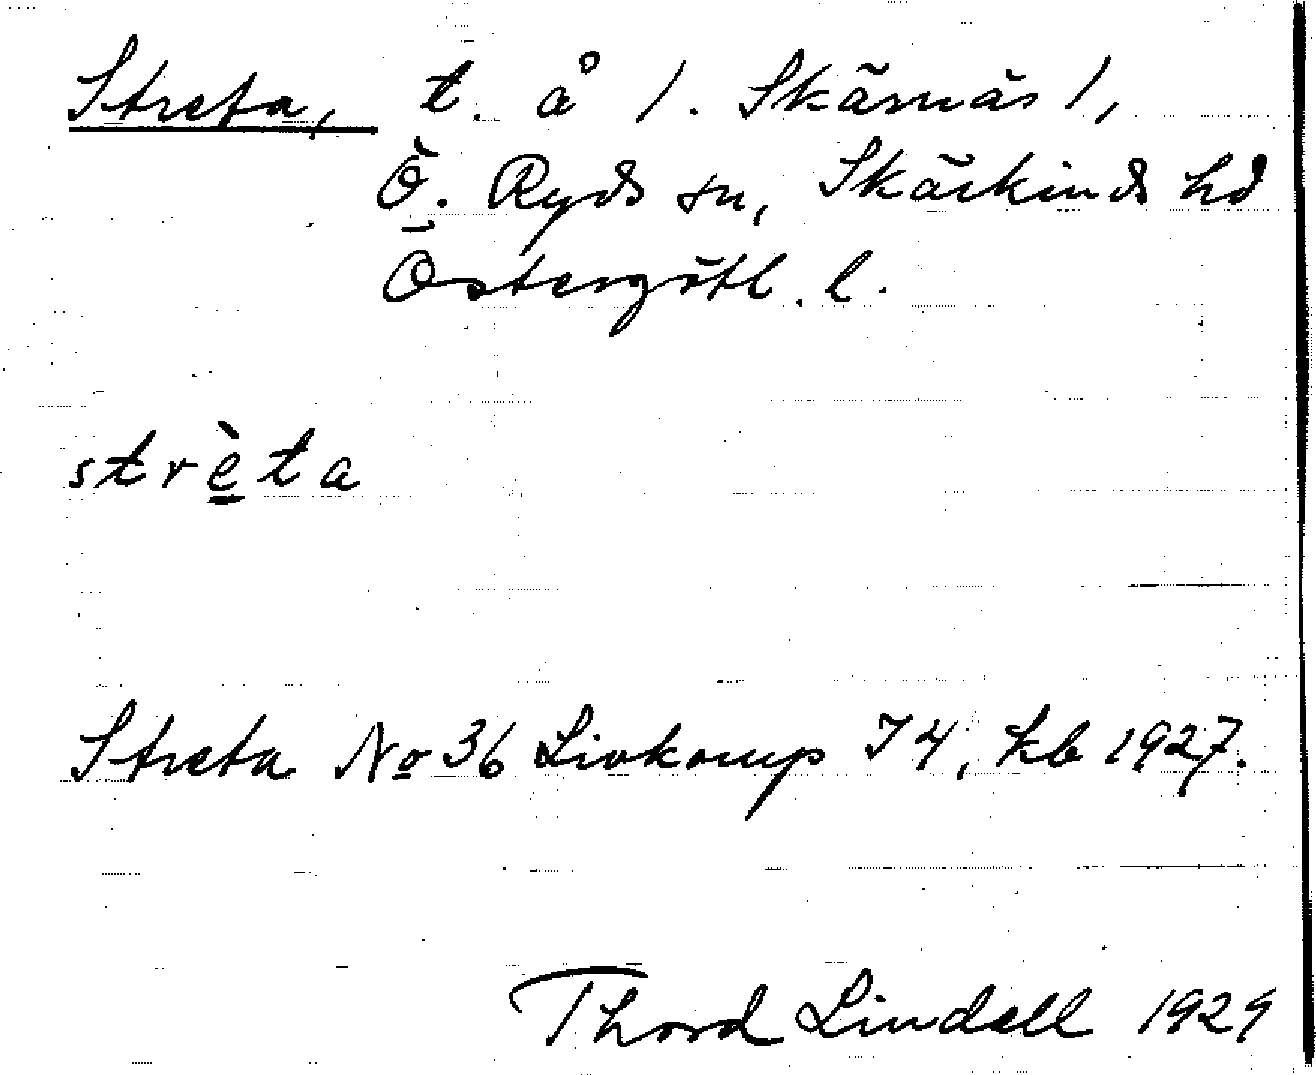 Streta, t. å 1. Skärnäs 1,
Ö. Ryds sn, Skärkinds hd
Östergötl. l.
strèta
Streta No 36 Livkomp I 4, kb 1927.
Thord Lindell 1929